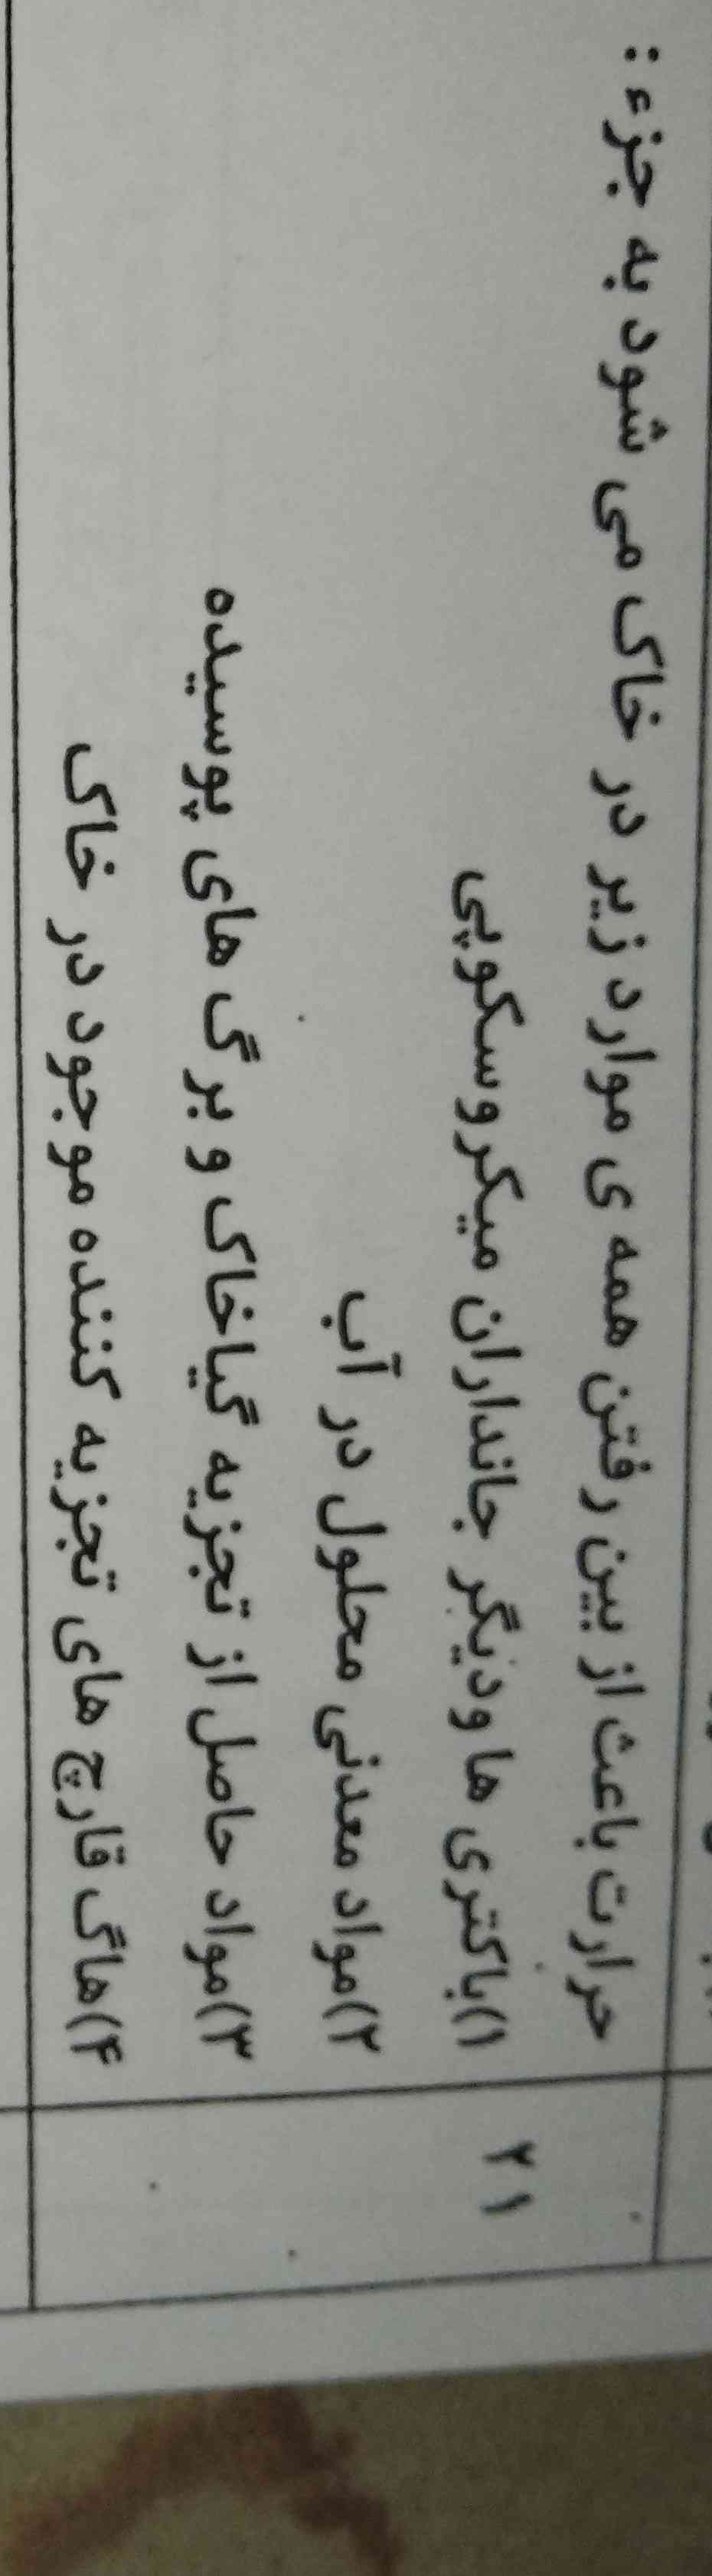 حرارت باعث از بین رفتن همه ی موارد زیر در خاک می شود به جزء :
۲۱
۱)باکتری ها ودیگر جانداران میکروسکوپی
۲)مواد معدنی محلول در آب
۳)مواد حاصل از تجزیه گیاخاک و برگ های پوسیده
۴)هاگ قارچ های تجزیه کننده موجود در خاک